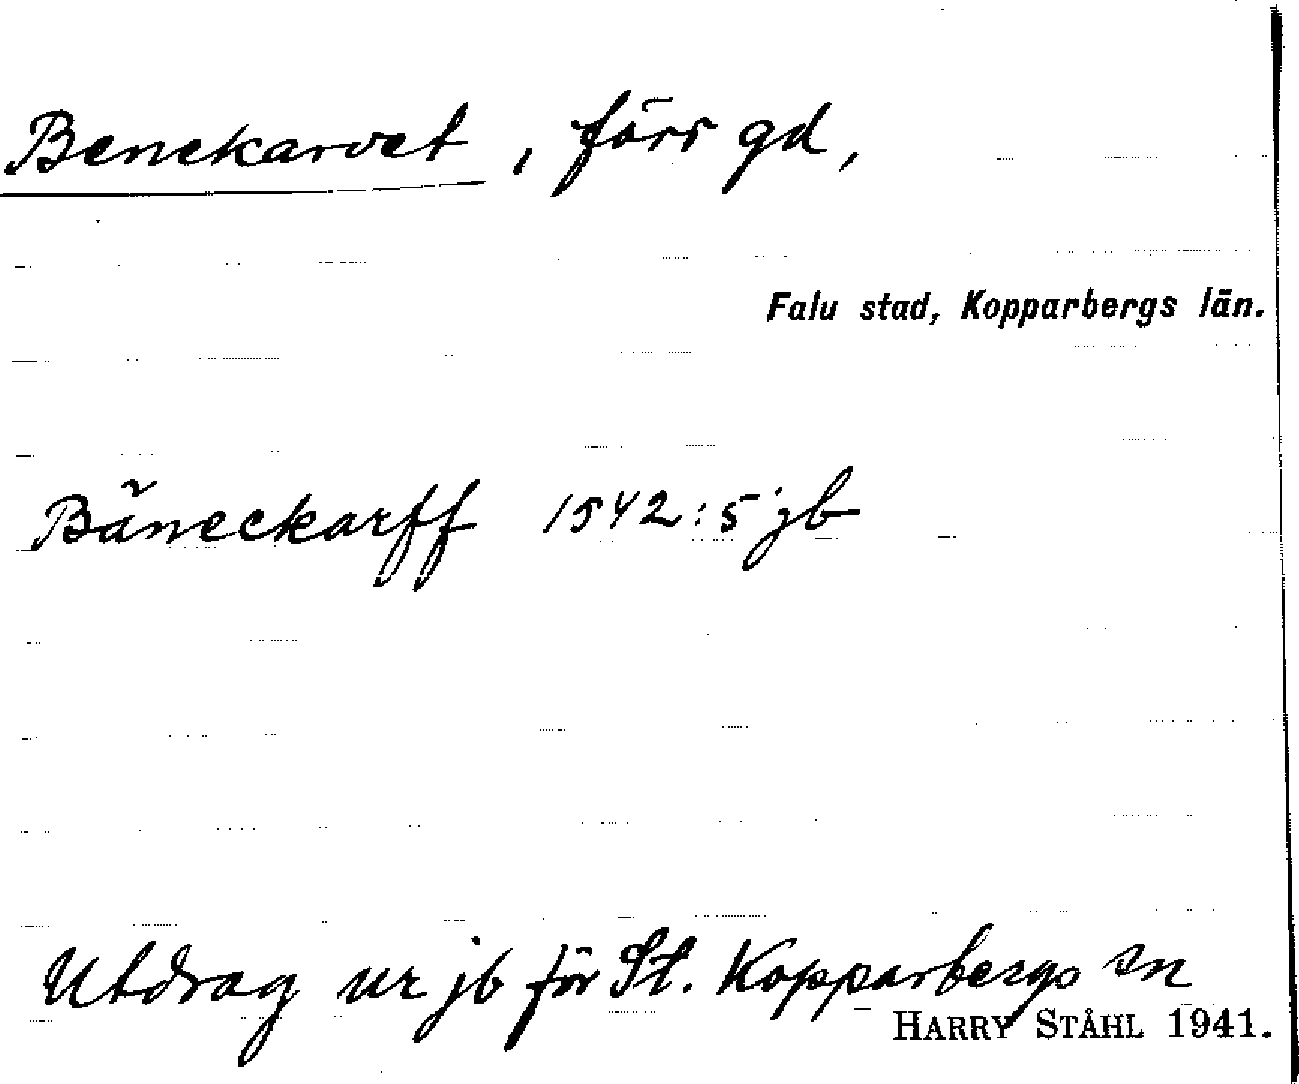 Benekarvet, förr gd,
Falu stad, Kopparbergs län.
Bäneckarff 1542:5 jb
Utdrag ur jb för St. Kopparbergs sn
HARRY STÅHL 1941.